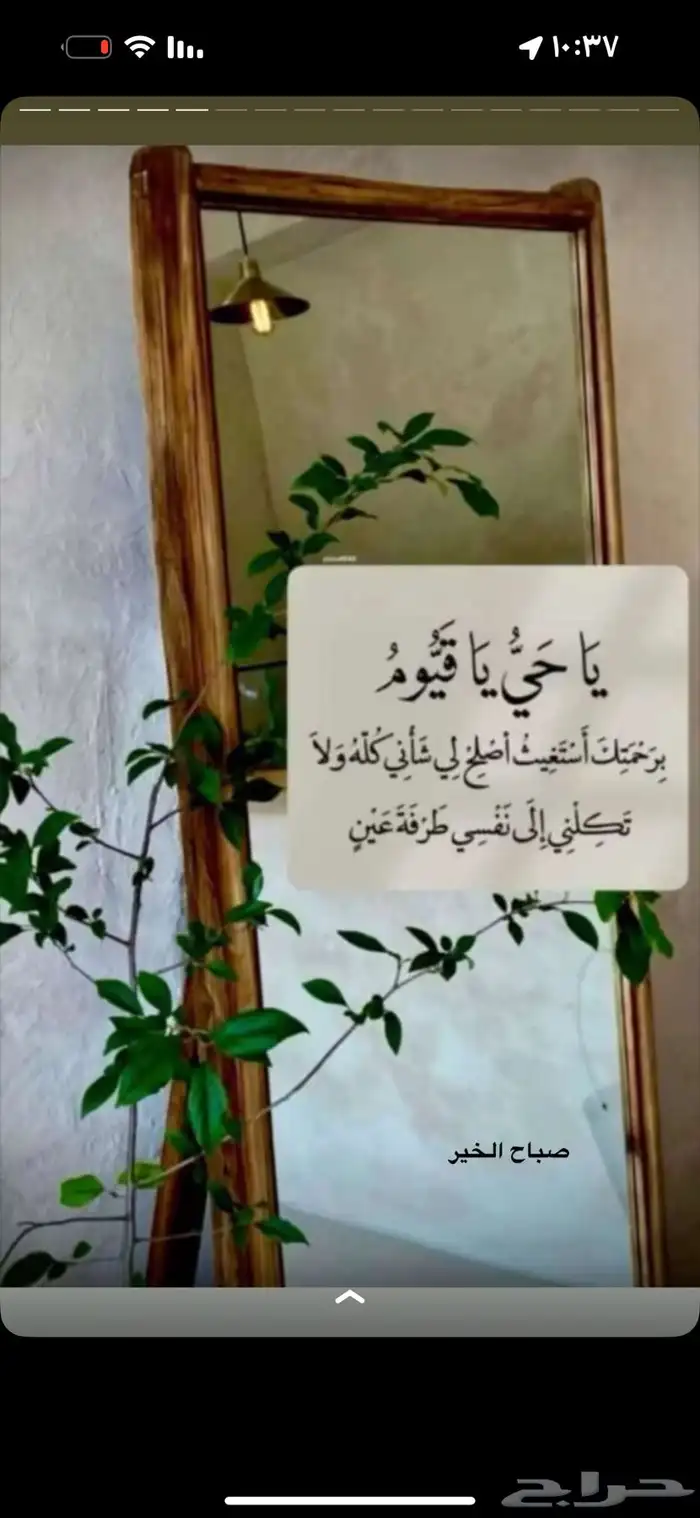 ١٠:٣٧
يَا حَيُّ يَا قَيُّومُ
بِرَحْمَتِكَ أَسْتَغِيثُ أَصْلِحْ لِي شَأْنِي كُلَّهُ وَلاَ
تَكِلْنِي إِلَى نَفْسِي طَرْفَةَ عَيْنٍ
صباح الخير
حراج